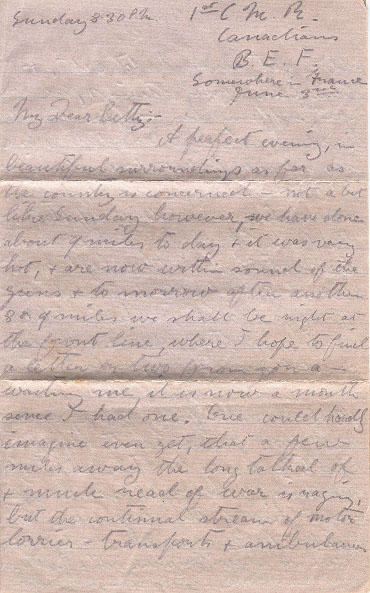 Sunday 8 30 P.M. 1st C. M. R.
Canadians
B. E. F.
Somewhere in France
June 3rd
My Dear Betty:-
A perfect evening, in
beautiful surroundings as far as
the country is concerned - not a bit
like Sunday however, we have done
about 9 miles to day & it was very
hot, & are now within sound of the
guns & to morrow after another
8 or 9 miles we shall be right at
the front line, where I hope to find
a letter or two from you a-
waiting me, it is now a month
since I had one. One could hardly
imagine even yet, that a few
miles away the long talked of
& much read of war is raging,
but the continual stream of motor
lorries - transports & ambulances